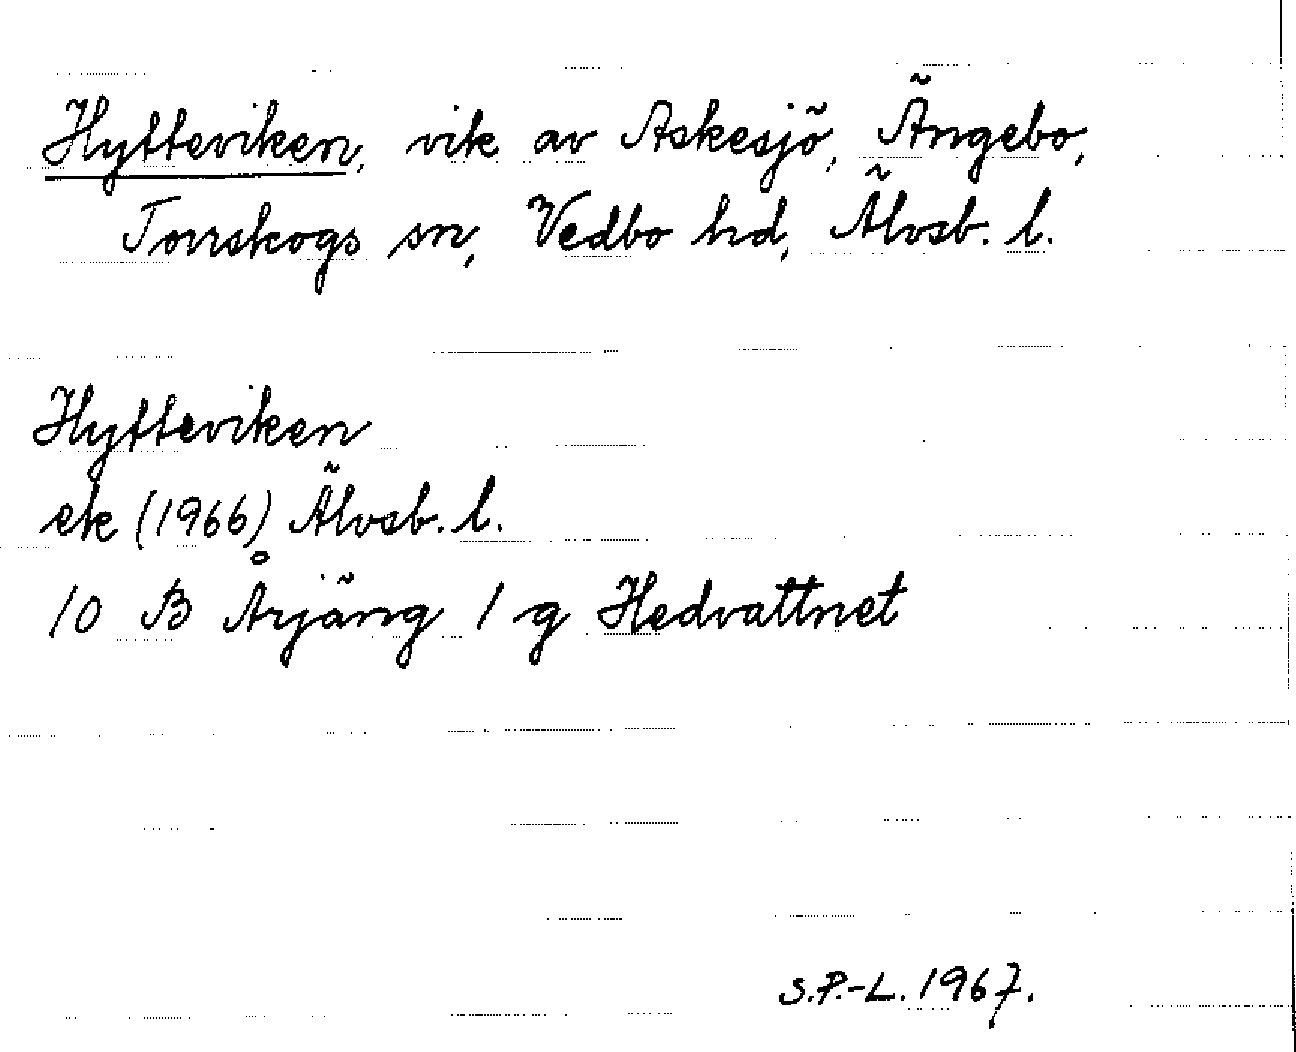 Hytteviken, vik av Askesjö, Ängebo,
Torrskogs sn, Vedbo hd, Älvsb. l.
Hytteviken
ek (1966) Älvsb. l.
10 B Årjäng 1 g Hedvattnet
S.P.-L. 1967.